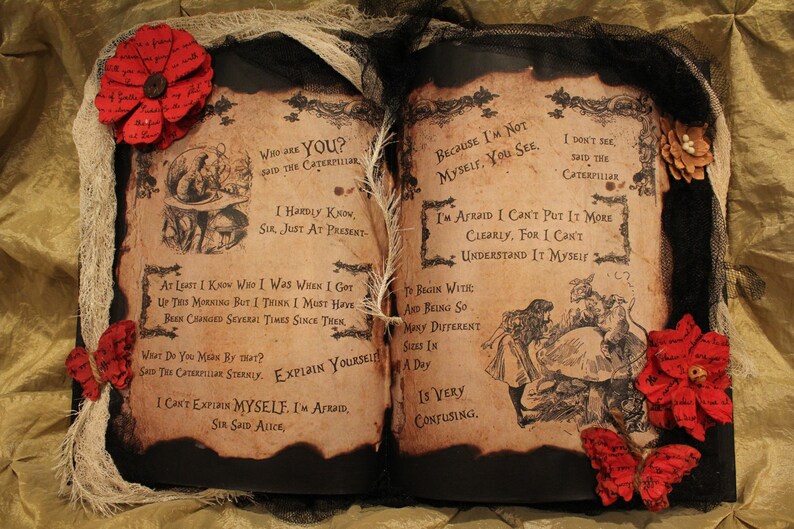 Who are YOU?
said the Caterpillar.
I Hardly Know,
Sir, Just At Present-
At Least I Know Who I Was When I Got
Up This Morning But I Think I Must Have
Been Changed Several Times Since Then.
What Do You Mean By that?
Said The Caterpillar Sternly. Explain Yourself!
I Can't Explain MYSELF, I'm Afraid,
Sir Said Alice,
Because I'm Not
Myself, You See.
I don't see,
said the
Caterpillar
I'm Afraid I Can't Put It More
Clearly, For I Can't
Understand It Myself
To Begin With;
And Being So
Many Different
Sizes In
A Day
Is Very
Confusing.